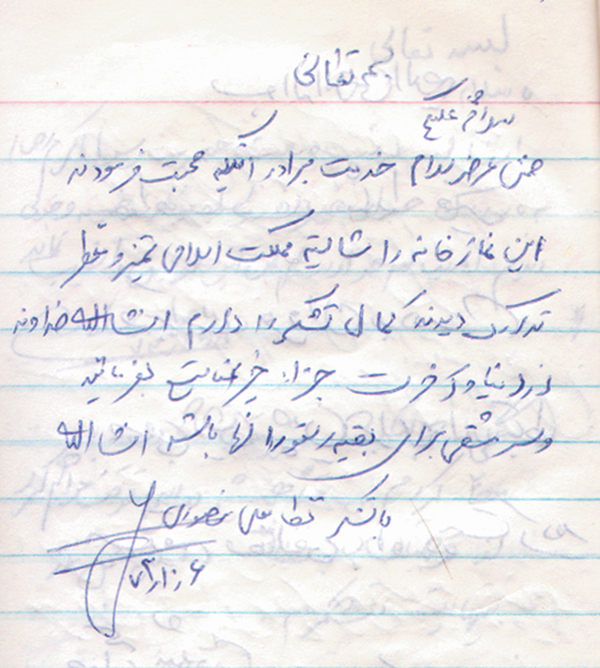 بسمه تعالی
سلام علیکم
ضمن عرض سلام خدمت برادر آنکه محبت فرمودند
این نمازخانه را شایسته مملکت اسلامی تمیز و عطر
تدارک دیدند کمال تشکر را دارم انشاالله خداوند
در دنیا و آخرت جزاء خیر عنایت بفرمائید
و سرمشقی برای بقیه رستورانها باشد انشاالله
با تشکر علی منصوری